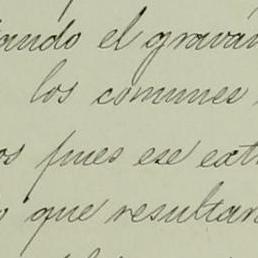 ando el graván
los comunes
os pues ese extr
que resultan